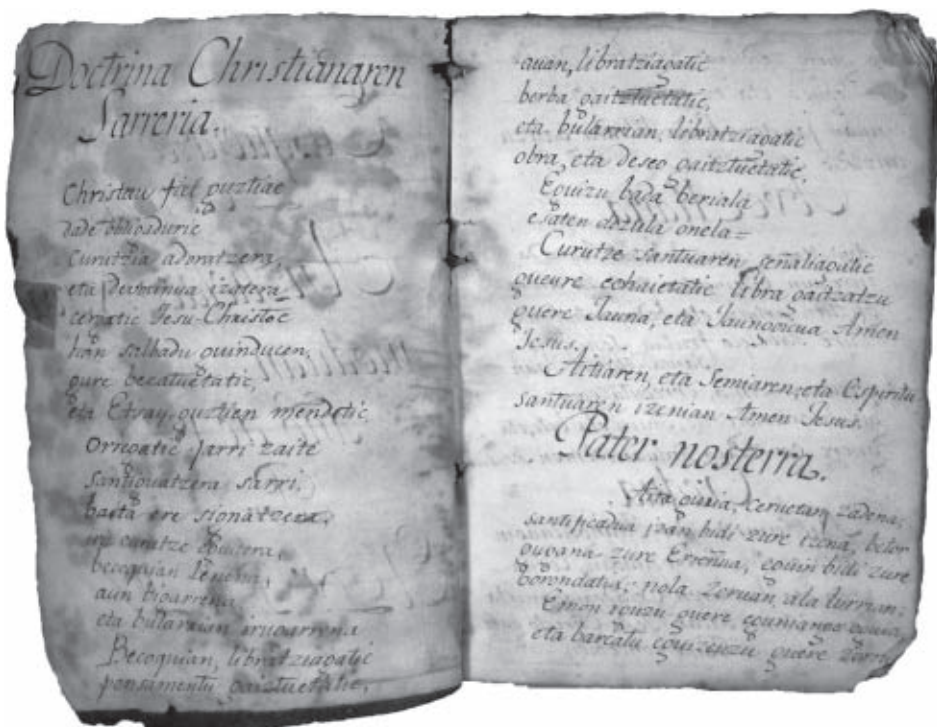 Doctrina Christianaren
Sarreria.
Christau fiel guztiac
dade obligaduric
Curutzia adoratzera,
eta devotinua izatera
cergatic Jesu-Christoc
han salbadu guinducen,
gure becatuetatic,
eta Etsay, guztien mendetic,
Orregatic jarri zaite
santiguatzera sarri,
baita ere signatzera,
iru curutze eguitera,
becoquian lenena,
aun bigarrena
eta bularrian irugarrena
Becoquian, libratziagatic
pensimentu gaiztuetatic,
auan, libratziagatic
berba gaiztuetatic,
eta bularrian, libratziagatic
obra, eta deseo gaiztuetatic.
Eguizu bada beriala
esaten dozula onela=
Curutze santuaren señaliagatic
gueure echaietatic libra gaitzatzu
guere Jauna, eta Jaungoicua Amen
Jesus.
Aitiaren, eta Semiaren, eta Espiritu
santuaren izenian Amen Jesus.
Pater nosterra.
Aita guria, ceruetan zadena,
santificadua izan bidi zure izena, betor
gugana zure Erreñua, eguin bidi zure
borondatia, nola zeruan, ala lurrian,
Emon eguzu guere, egunango
eta barcatu eguizcuzu guere zorrac